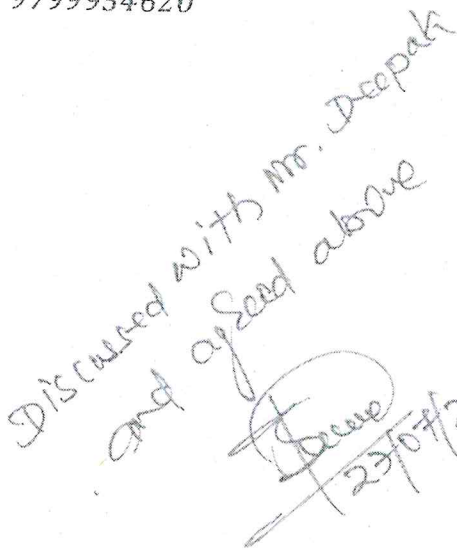 9799954620
Discussed with Mr. Deepak
and agreed above
27/07/2